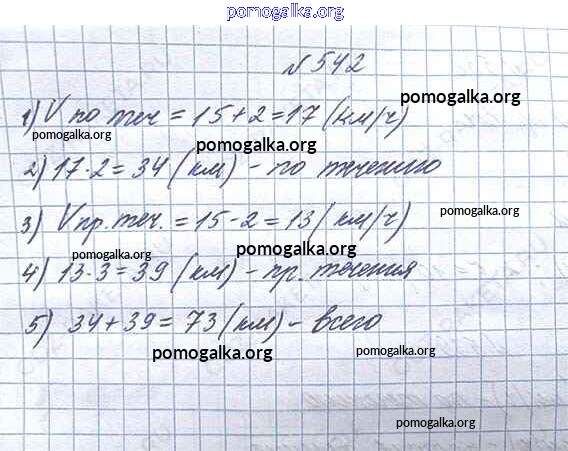 pomogalka.org
№542
pomogalka.org
1) V по теч = 15+2=17 (км/ч)
pomogalka.org
pomogalka.org
2) 17·2=34 (км) - по течению
pomogalka.org
3) V пр. теч. = 15-2=13 (км/ч)
pomogalka.org
pomogalka.org
4) 13·3=39 (км) - пр. течения
5) 34+39=73 (км) - всего
pomogalka.org
pomogalka.org
pomogalka.org